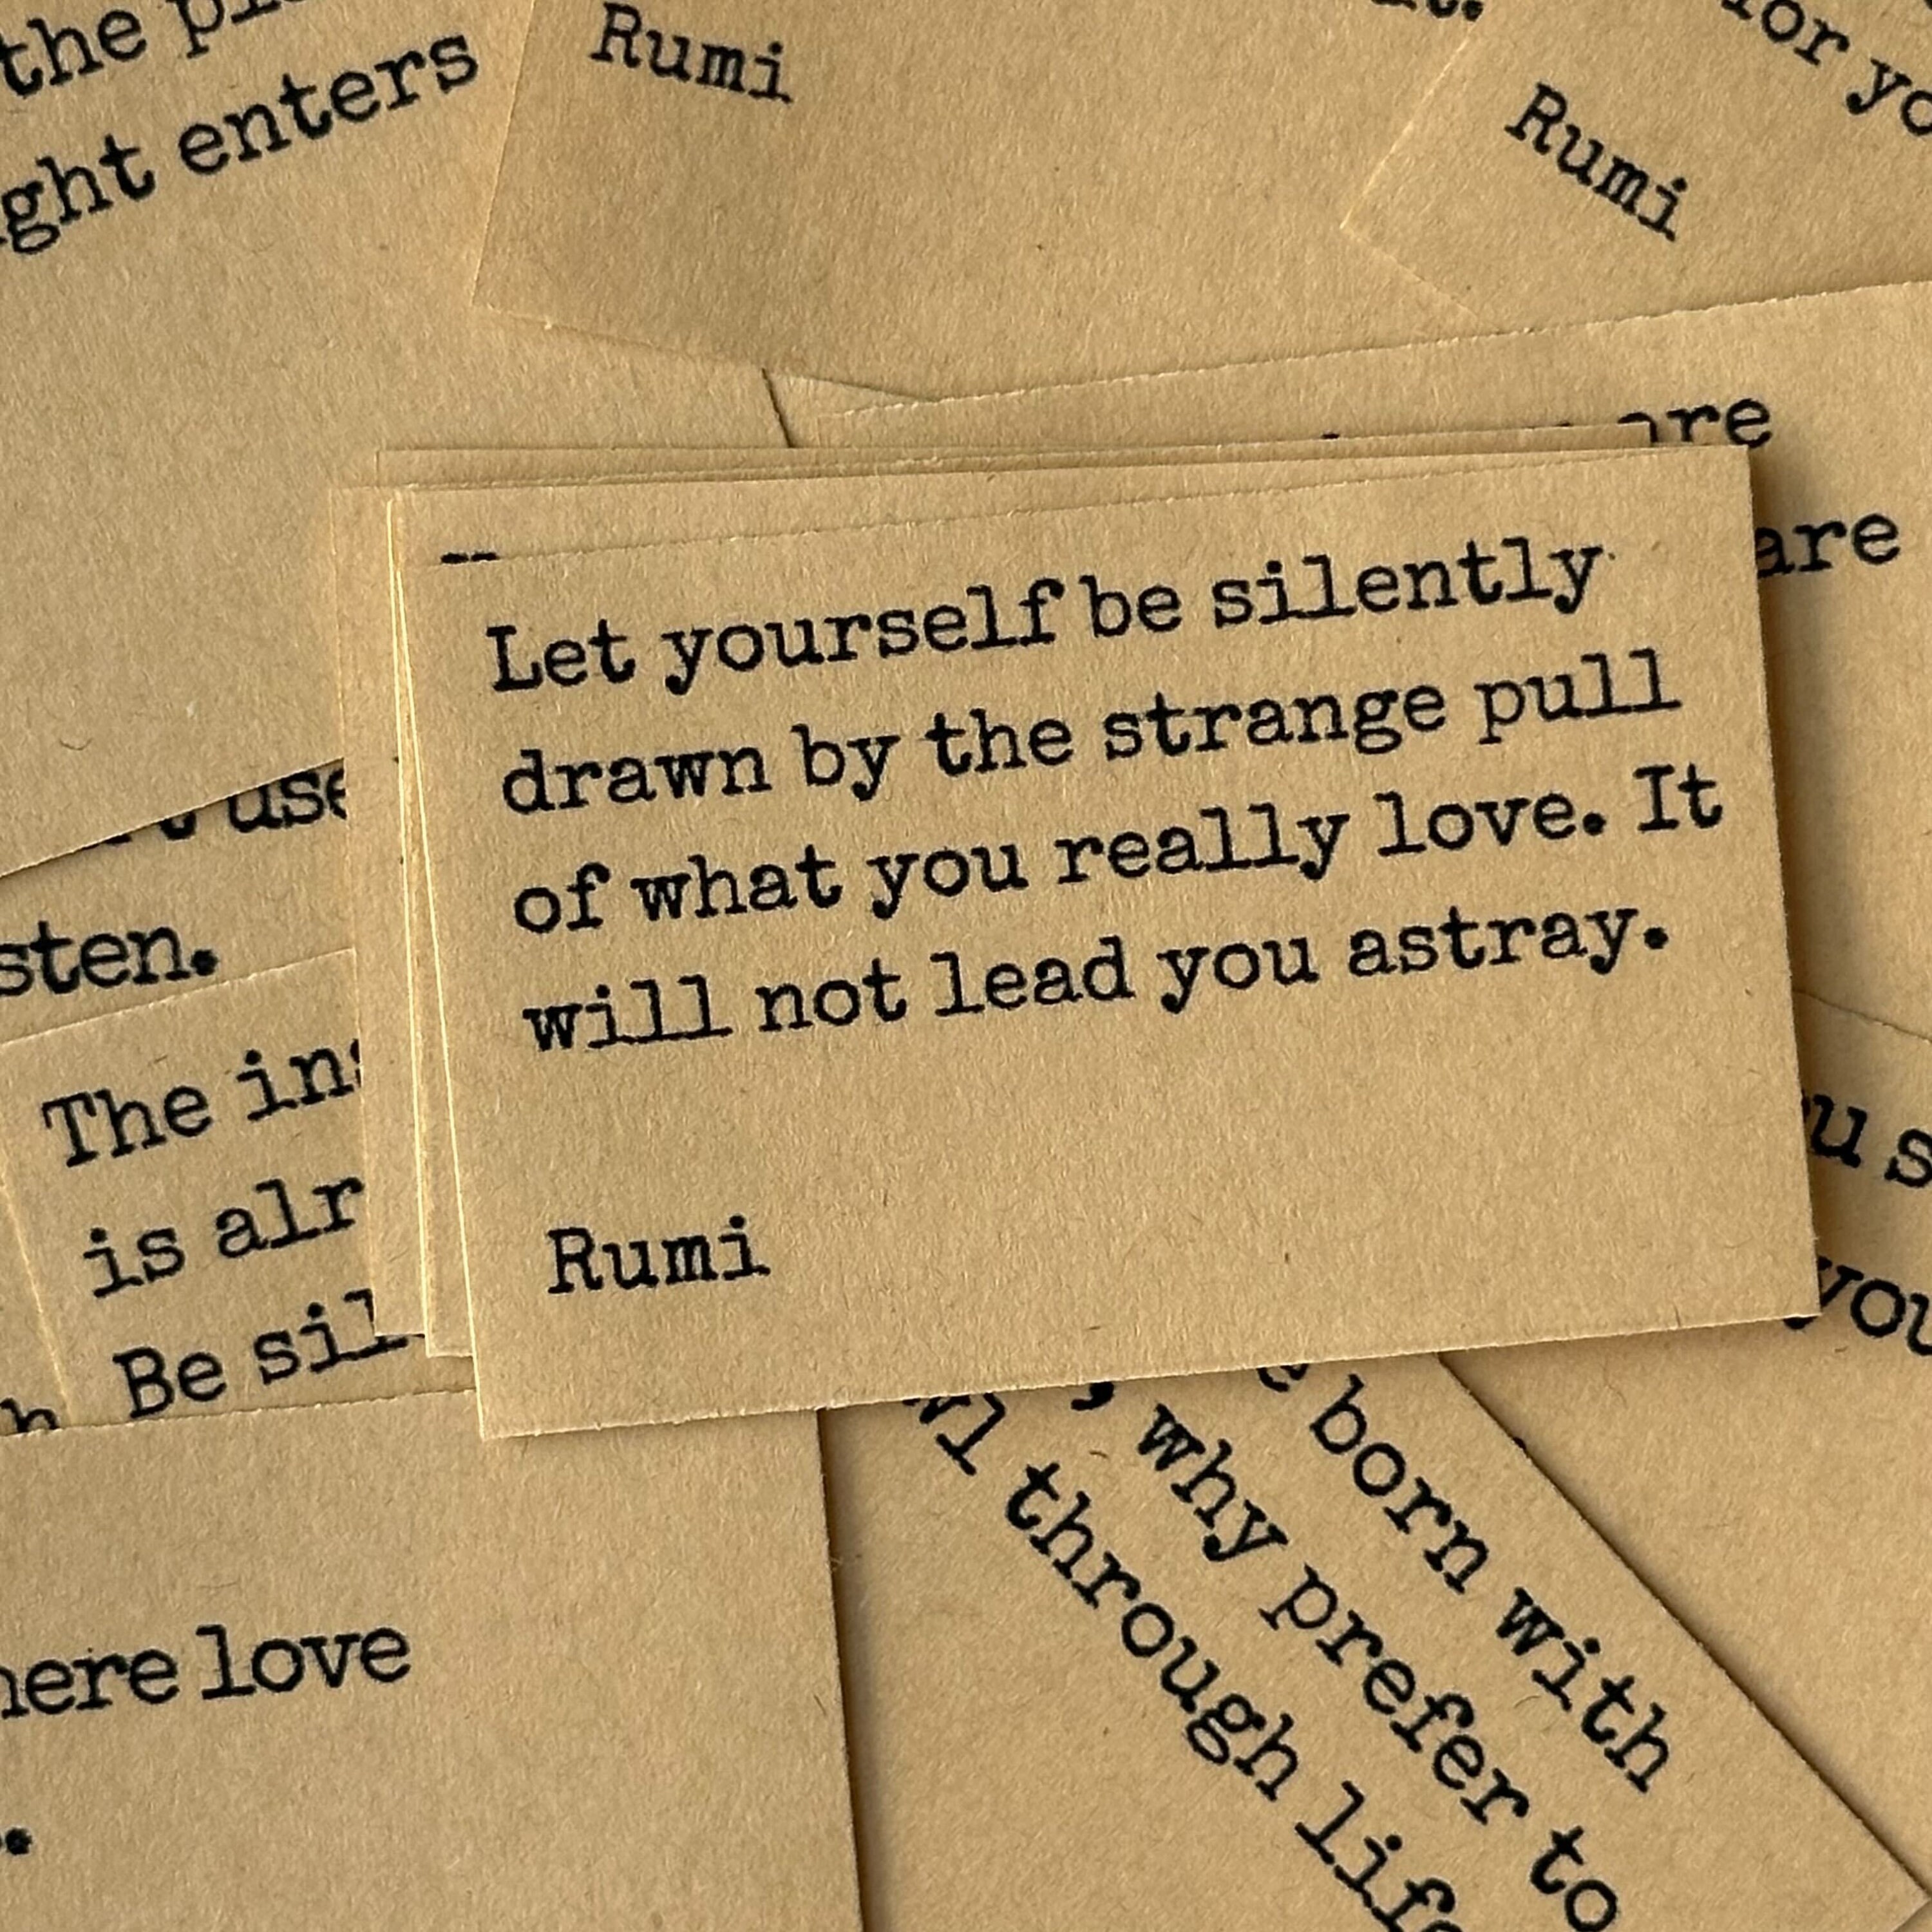 the
ght enters
Rumi
for yo
Rumi
are
are
--
Let yourself be silently
drawn by the strange pull
of what you really love. It
will not lead you astray.
Rumi
use
sten.
The ins
is alr
Be sil
u s
you
here love
born with
, why prefer to
wl through life